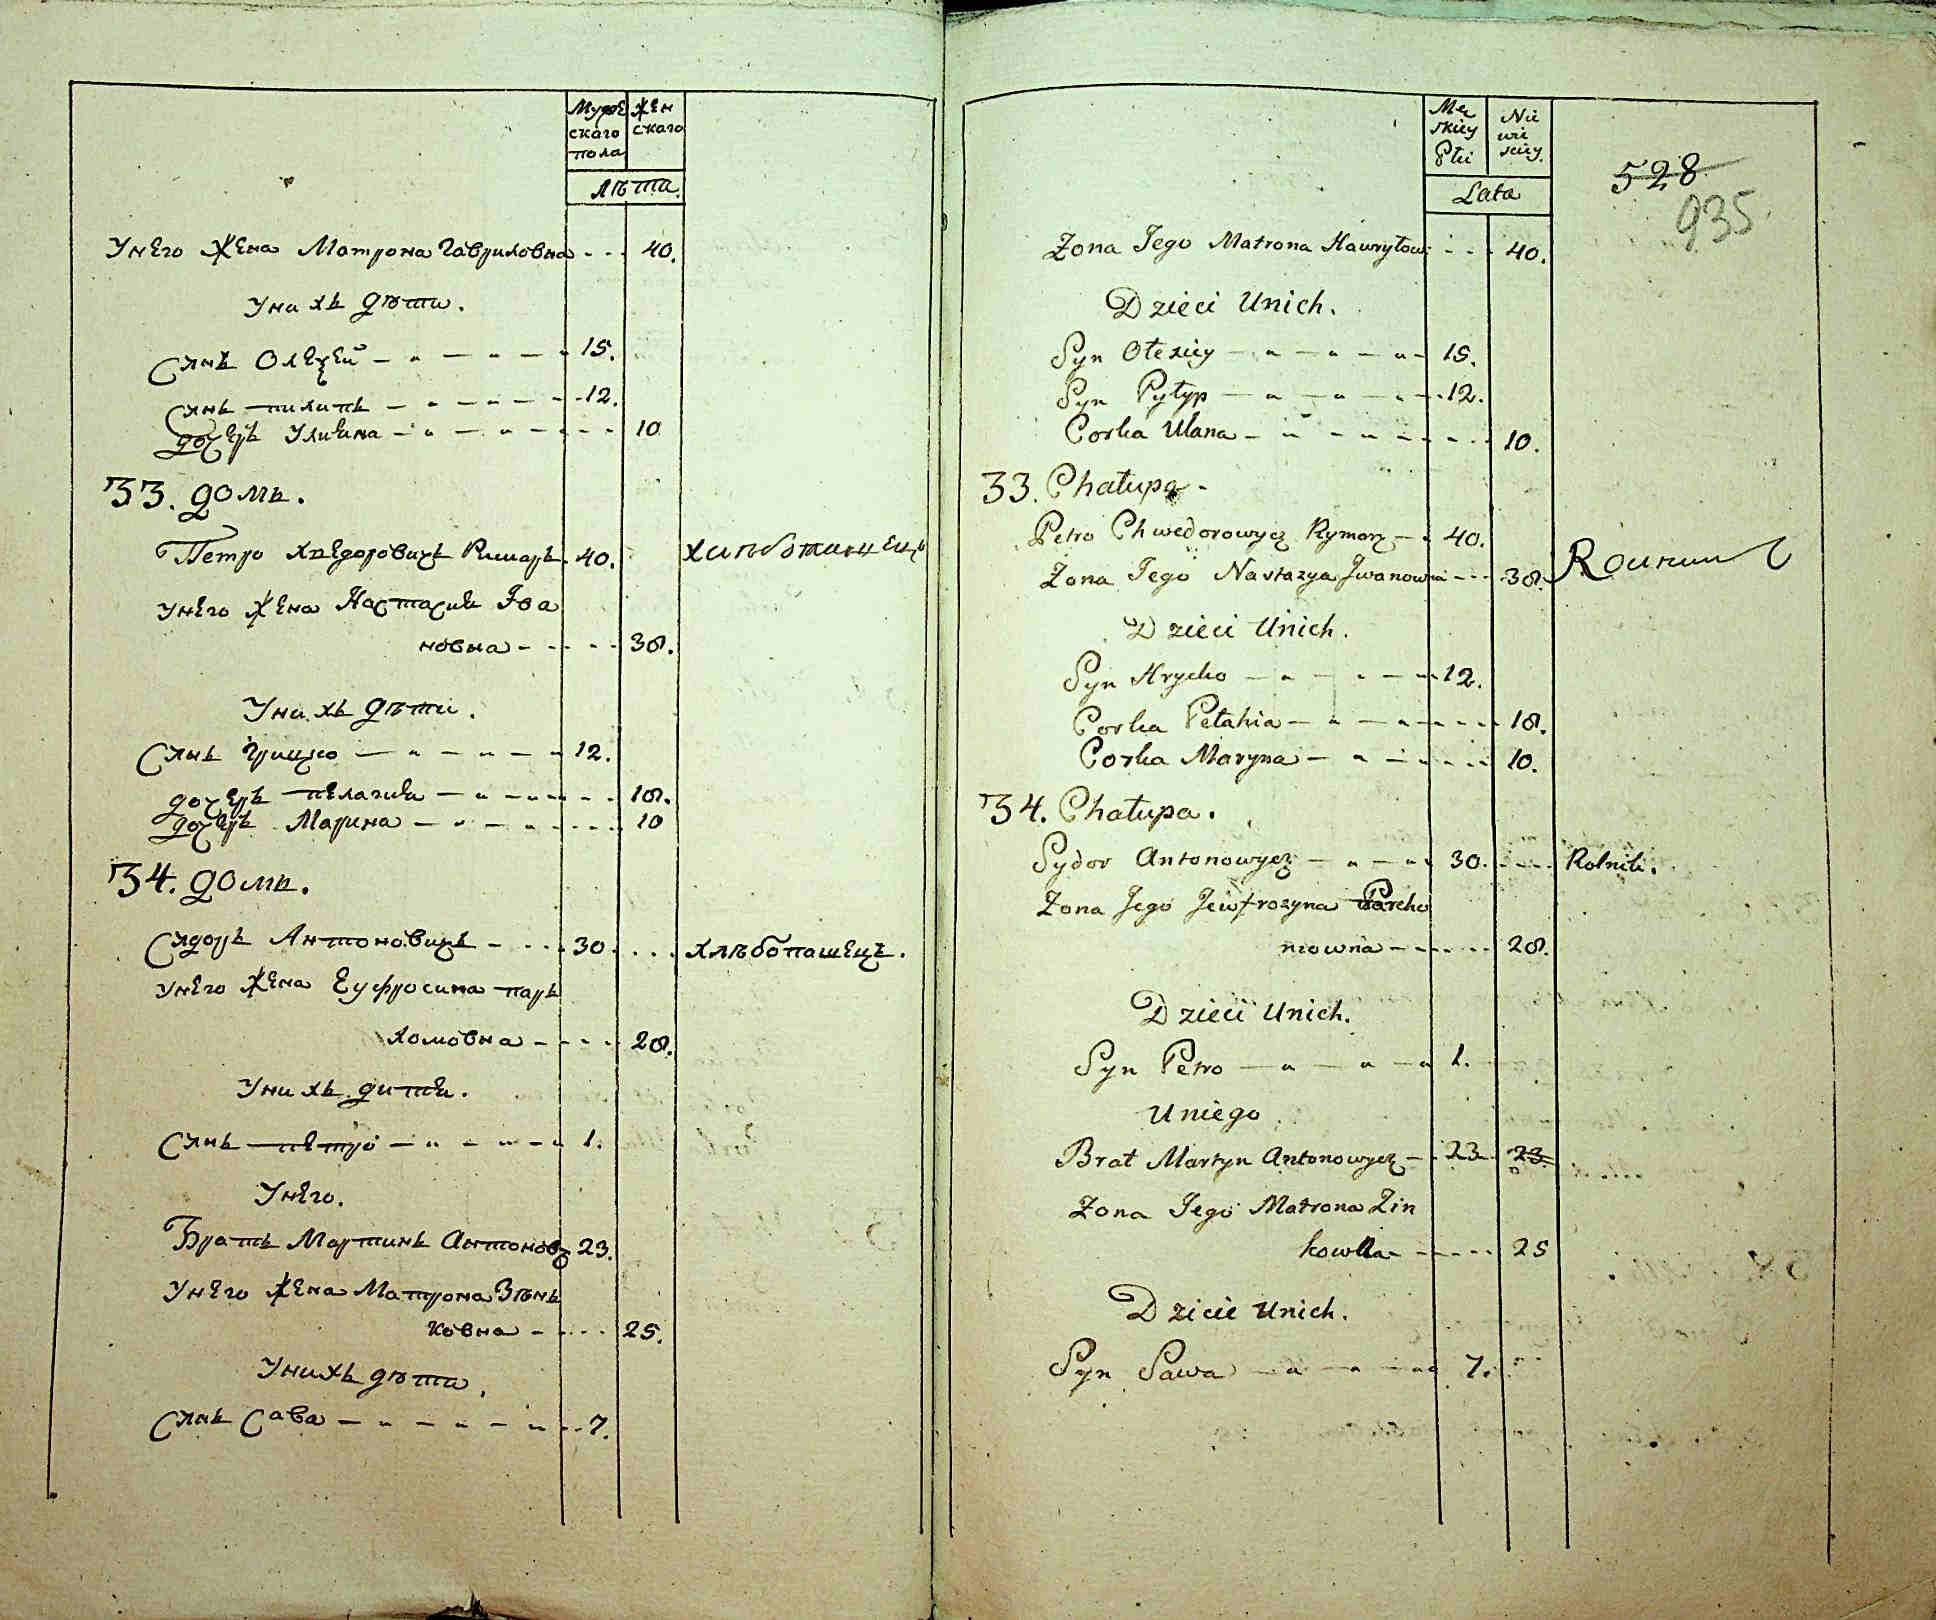 Мужескаго пола
Женскаго
лѣта.
Унего Жена Матрона Гавриловна 40.
Унихъ дѣти.
Сынъ Олексѣй 15.
Сынъ пилипъ 12.
дочеръ Улияна 10
33. домъ.
Петро Хведоровичъ Римаръ 40.
Унего Жена Настасия Iва
новна 38.
Унихъ дѣти.
Сынъ Грицко 12.
дочеръ пелагия 18.
дочеръ Марина 10
34. домъ.
Сидоръ Антоновичъ 30. хлѣбопашецъ.
Унего Жена Еуфросина парѣ
хомовна 28.
Унихъ дити.
Сынъ петро 1.
Унего.
Братъ Мартинъ Антонов 23.
Унего Жена Матрона Зѣнь
ковна 25.
Унихъ дѣти.
Сынъ Сава 7.
Męskiey Płci
Niewieściey.
Lata
528
935
Zona Jego Matrona Hawryłow 40.
Dzieci Unich.
Syn Ołexiey 15.
Syn Pyłyp 12.
Corka Ulana 10.
33. Chałupa.
Petro Chwedorowycz Rymarz 40.
Zona Jego Nastazya Jwanowna 38. Rolnik
Dzieci Unich.
Syn Hrycko 12.
Corka Pełahia 18.
Corka Maryna 10.
34. Chałupa.
Sydor Antonowycz 30. Rolnik.
Zona Jego Jewfrozyna Parcho
mowna 28.
Dzieci Unich.
Syn Petro 1.
Uniego
Brat Martyn Antonowycz 23 23.
Zona Jego Matrona Zin
kowna 25
Dzicie Unich.
Syn Sawa 7.